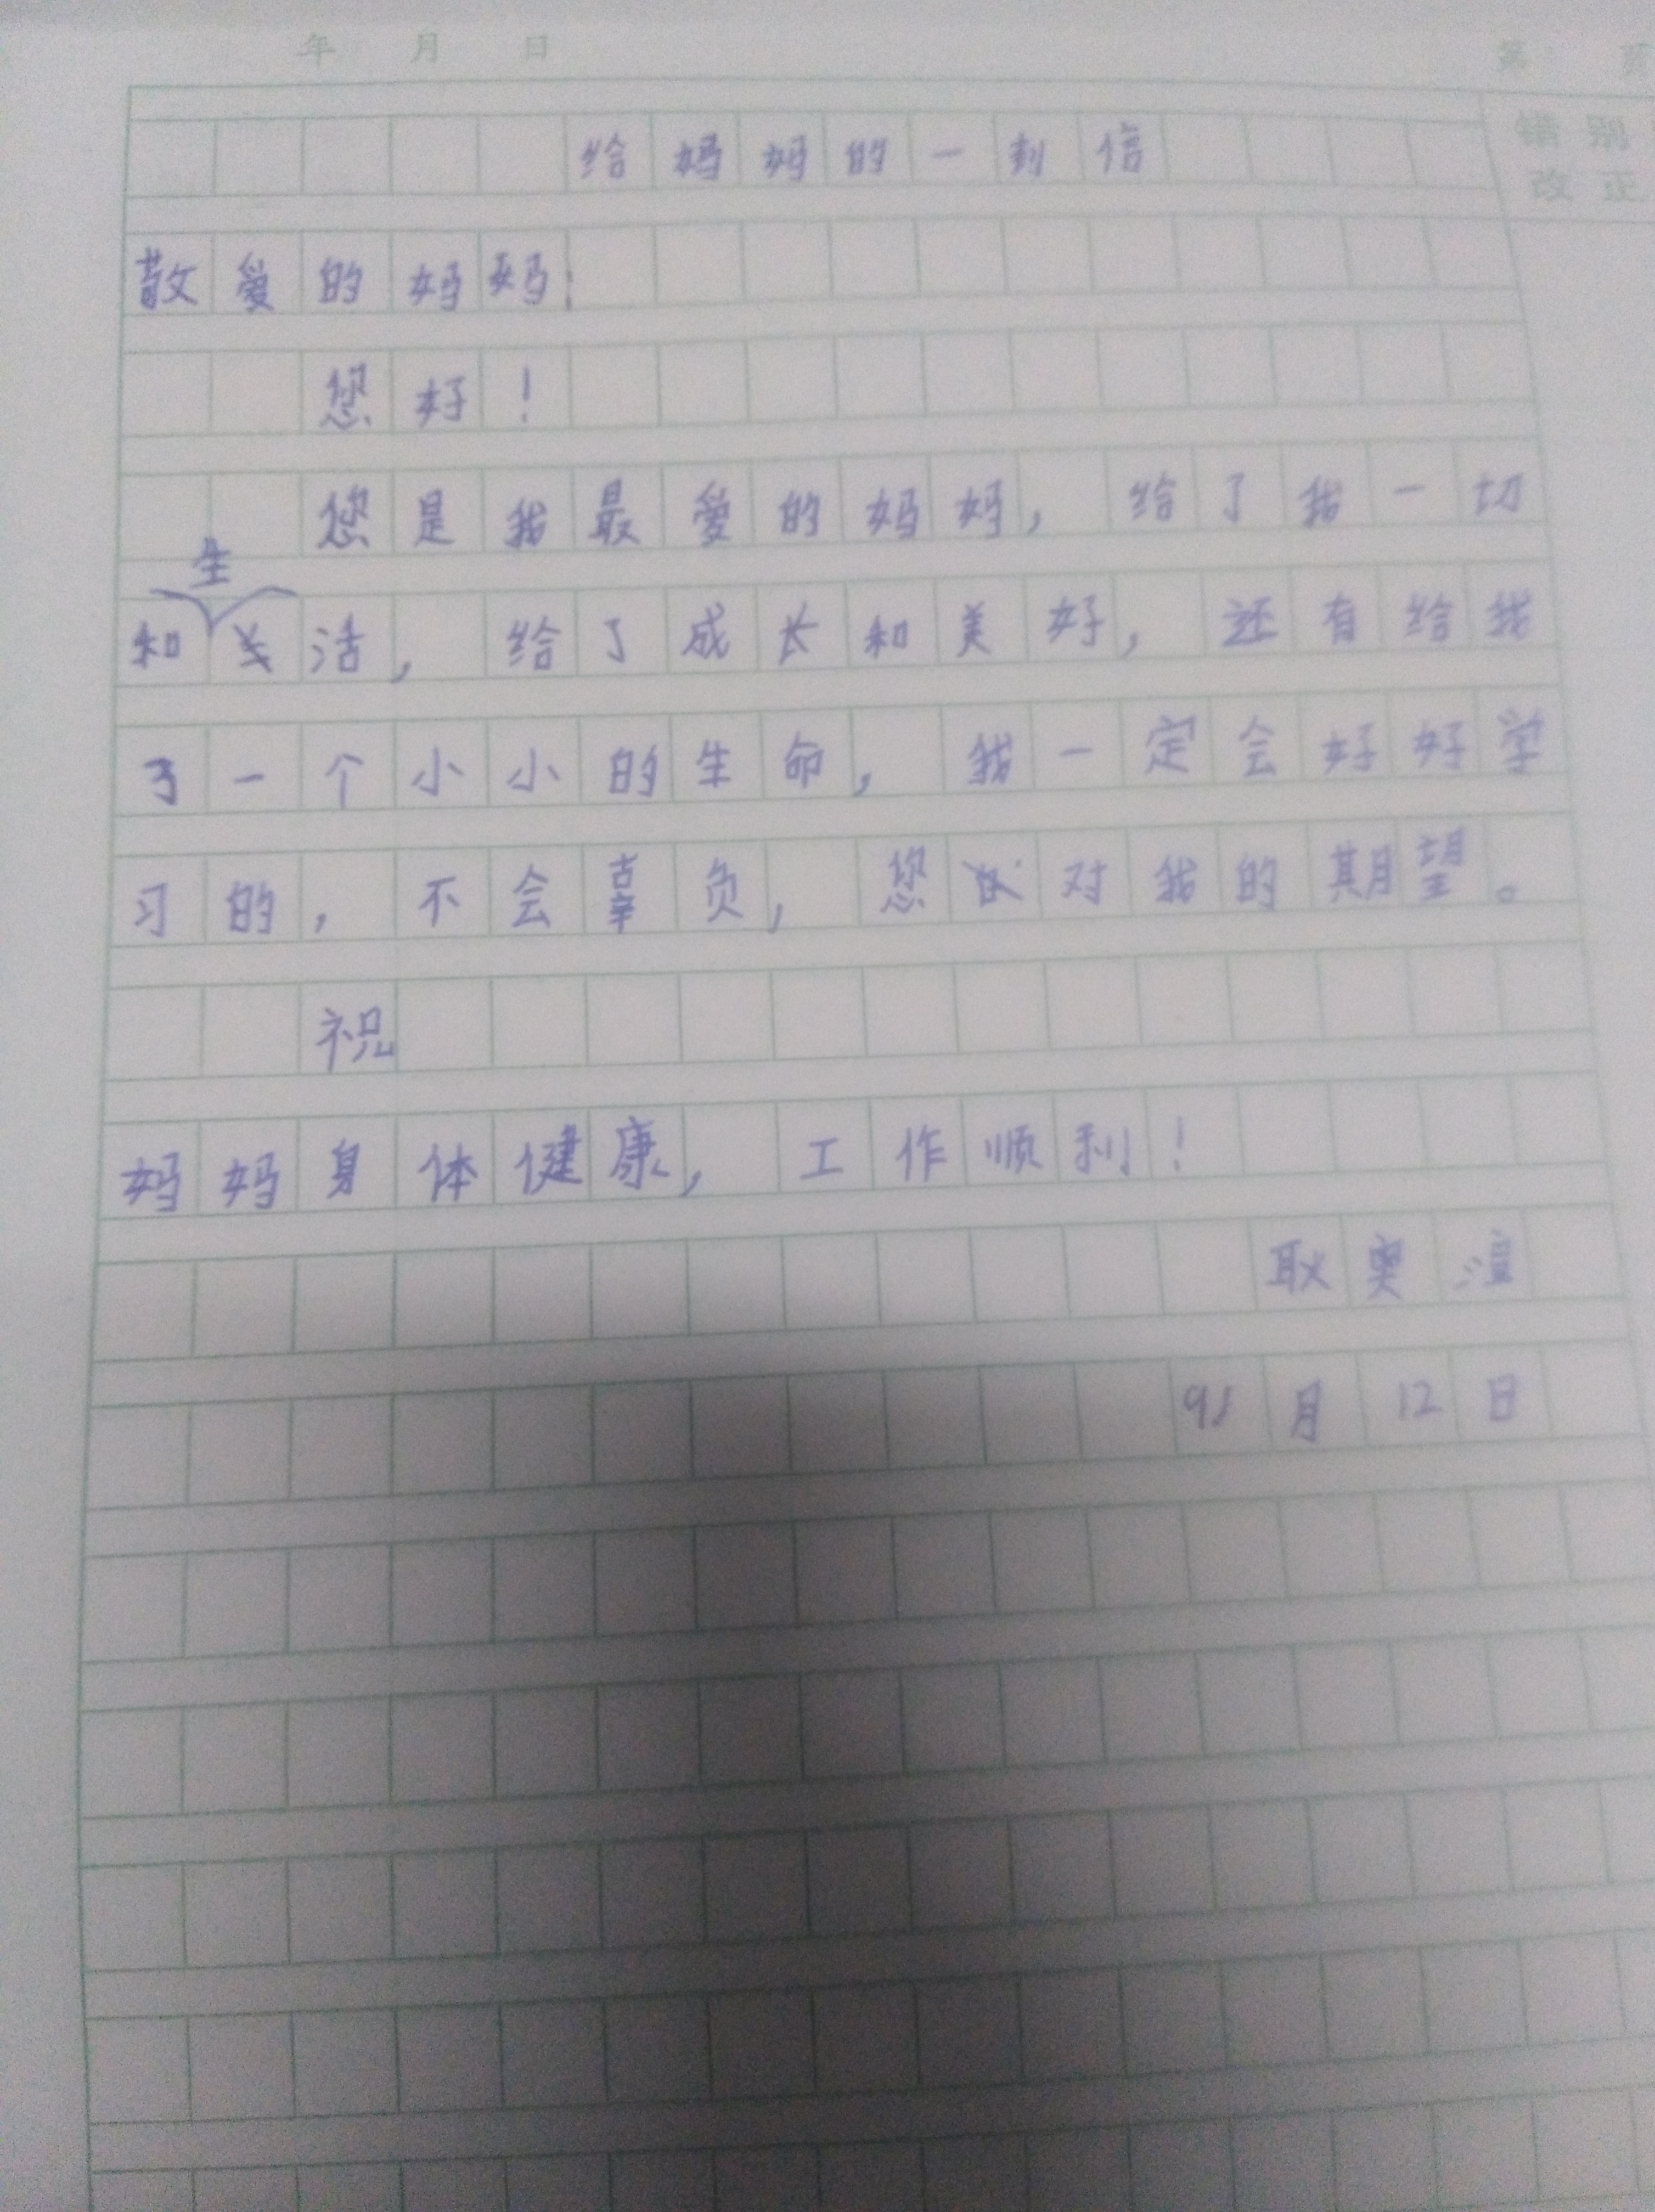 年 月 日 第 页
错别
改正
给妈妈的一封信
敬爱的妈妈：
您好！
您是我最爱的妈妈，给了我一切
和生活，给了成长和美好，还有给我
了一个小小的生命，我一定会好好学
习的，不会辜负，您对我的期望。
祝
妈妈身体健康，工作顺利！
耿奕
月12日